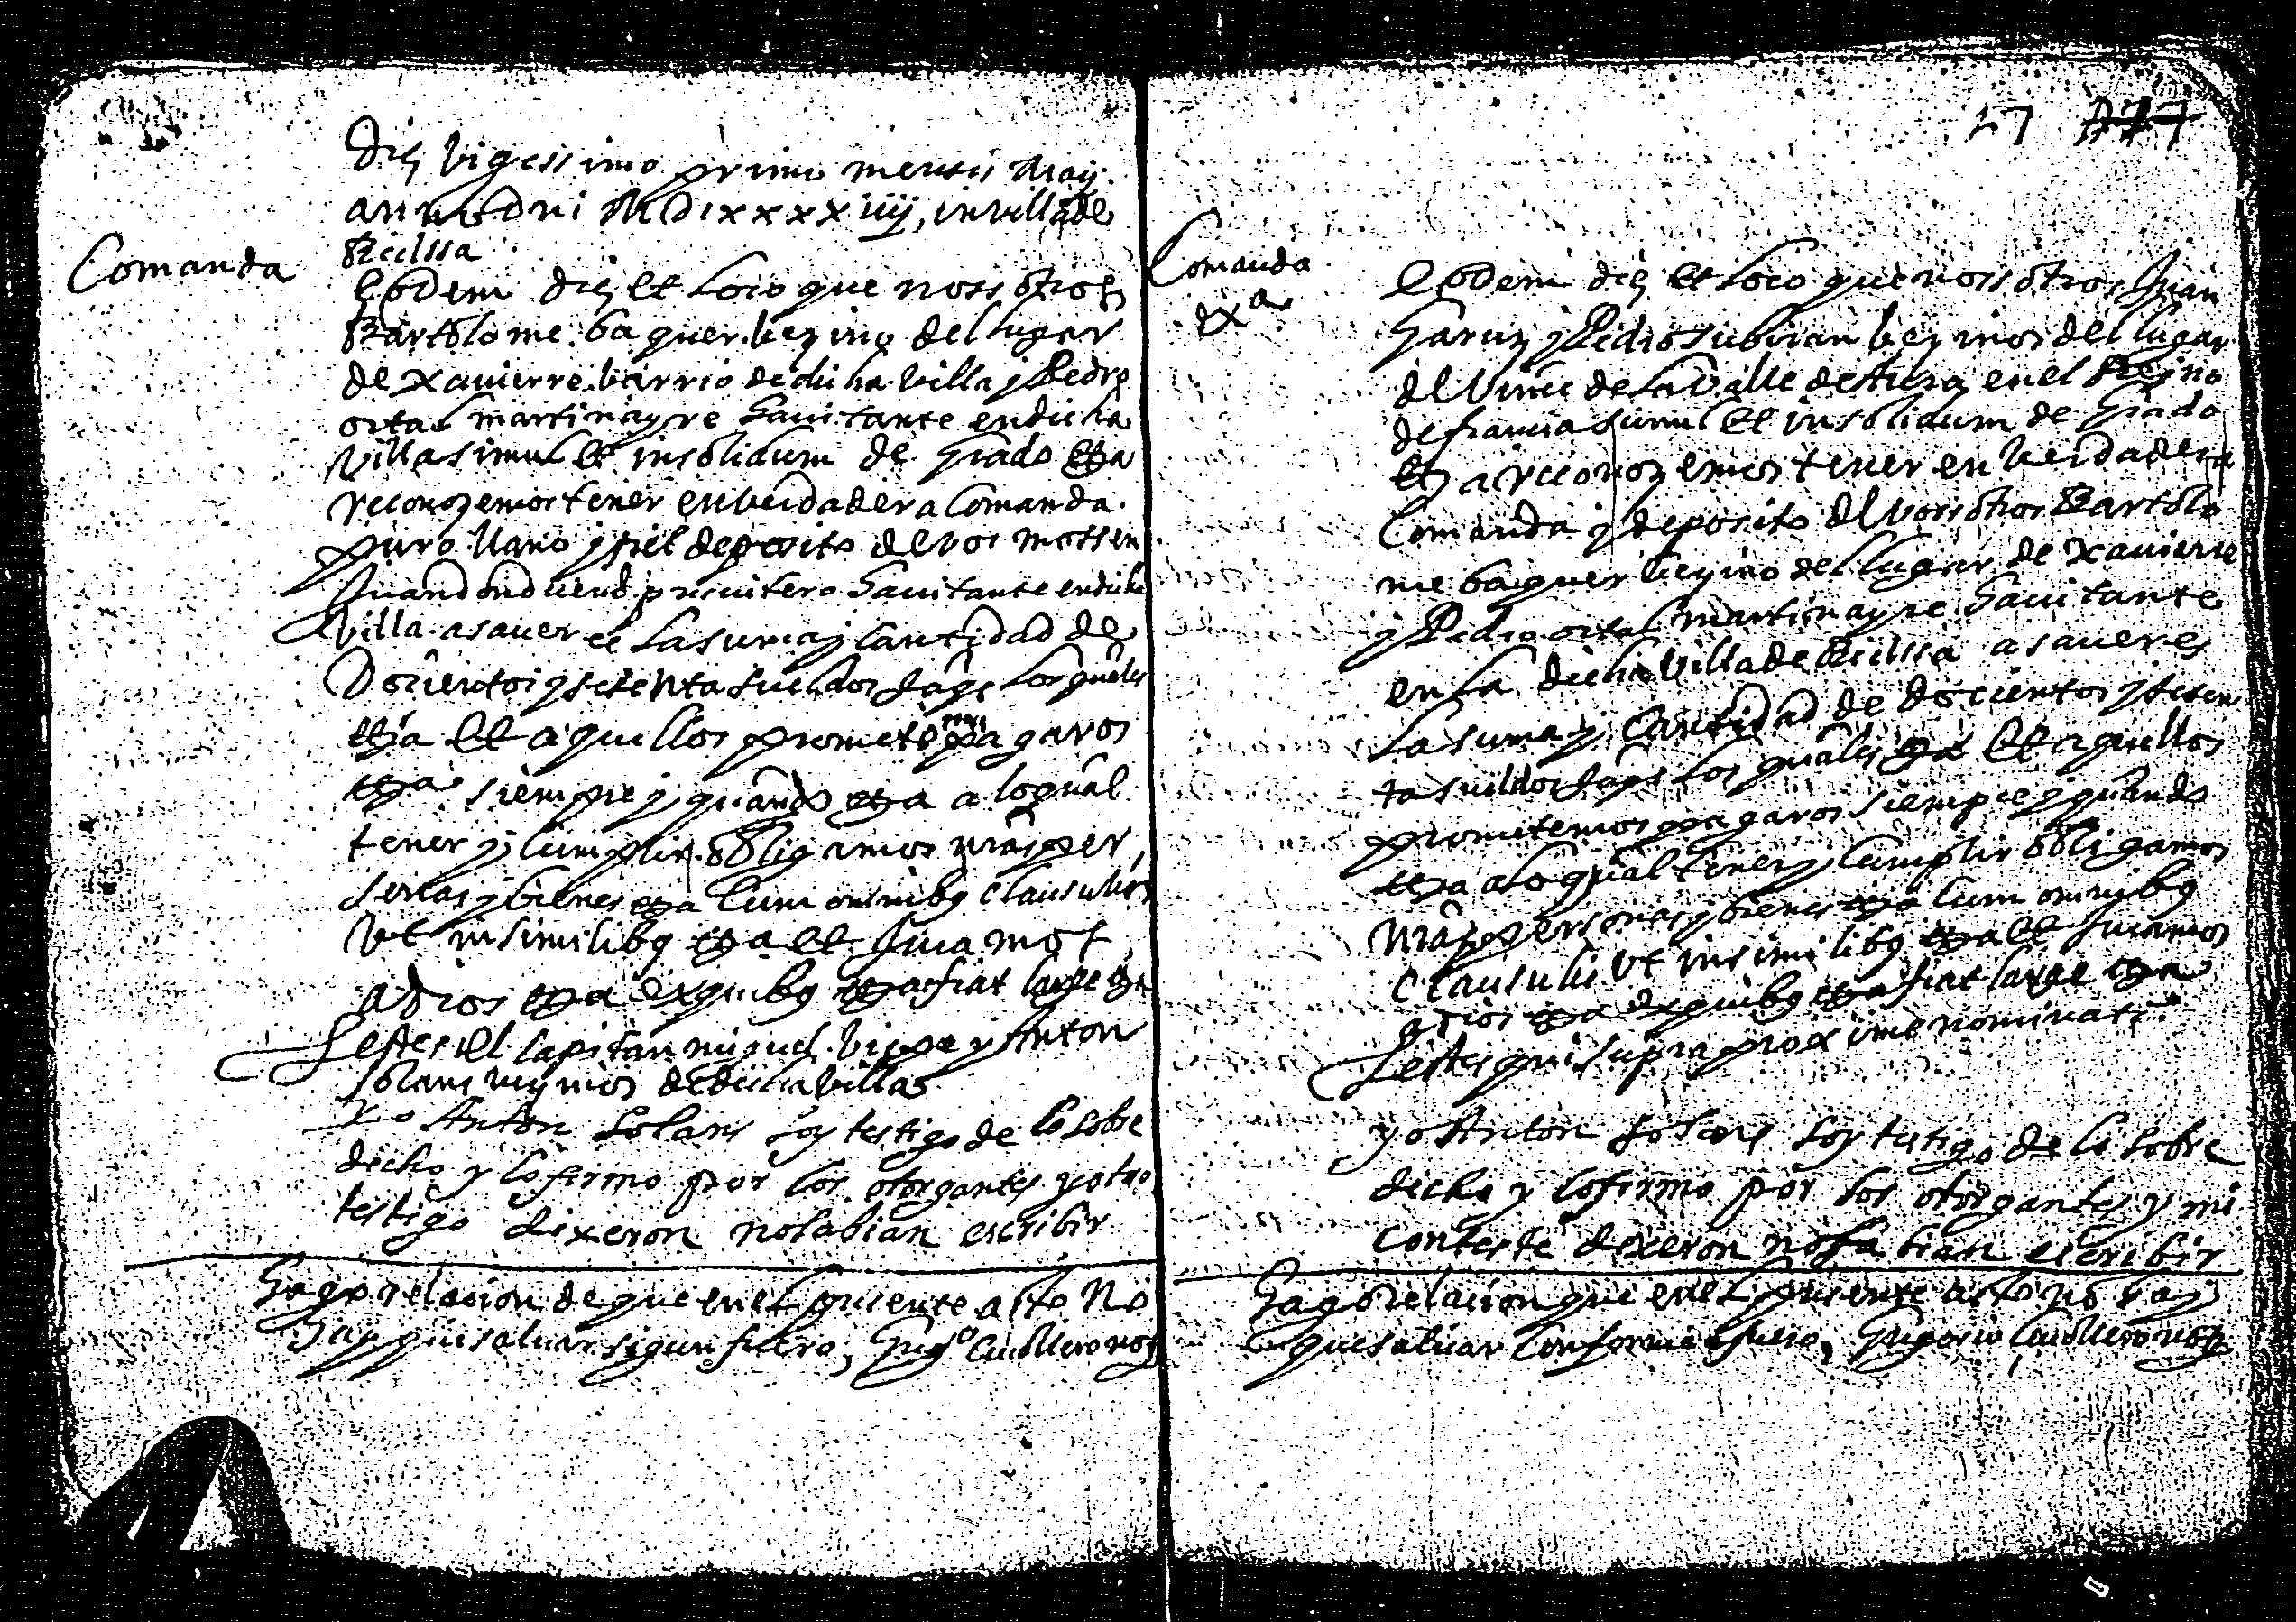 Die vigessimo primo mensis Maij
anno dni MDLxxxxiiij, in villa de
Bielssa
Comanda
Eodem die et loco que nossotros
Bartolome baquer vezino del lugar
de Xauierre barrio de dicha villa y Pedro
ortal martinayre hauitante en dicha
villa simul et insolidum de grado etca
reconozemos tener en verdadera Comanda
puro llano y fiel deposito de vos mossen
Juan presuitero hauitante en dicha
villa asauer es la suma y cantidad de
Docientos y setenta sueldos jaqs los quales
etca et aquellos prometemos pagaros
etca siempre y quando etca a lo qual
tener y cumplir obligamos nras per
sonas y bienes etca cum omnibus clausulis
ut in similibus etca et Juamos
a dios etca ex quibus etca fiat large etca
Testes el capitan miguel y Anton
Solans vezinos de dicha villa
Yo Anton Solans soy testigo de lo sobre
dicho y lo firmo por los otorgantes y otro
testigo dixeron no sabian escribir
Hago relacion de que en el presente acto No
hay que saluar segun fuero, Gregº not
27 177
Comanda
exa
Eodem die et loco que nossotros Juan
Garuz y Pedro subiran vezinos del lugar
de la Valle de Aura en el Reyno
de francia simul et insolidum de Grado
etca reconozemos tener en verdadera
Comanda y deposito de vossotros Bartolo
me baquer vezino del lugar de Xauierre
y Pedro ortal martinayre hauitante
en la dicha villa de Bielssa asauer es
la suma y cantidad de docientos y seten
ta sueldos jaqs los quales etca et aquellos
prometemos pagaros siempre y quando
etca a lo qual tener y cumplir obligamos
nras personas y bienes etca cum omnibus
clausulis ut in similibus etca et Juramos
a dios etca ex quibus etca fiat large etca
Testes qui supra proxime nominati
yo Anton Solans soy testigo de lo sobre
dicho y lo firmo por los otorgantes y mi
conteste dixeron no sabian escribir
Hago relacion que en el presente acto no hay
que saluar conforme a fuero, Gregorio not